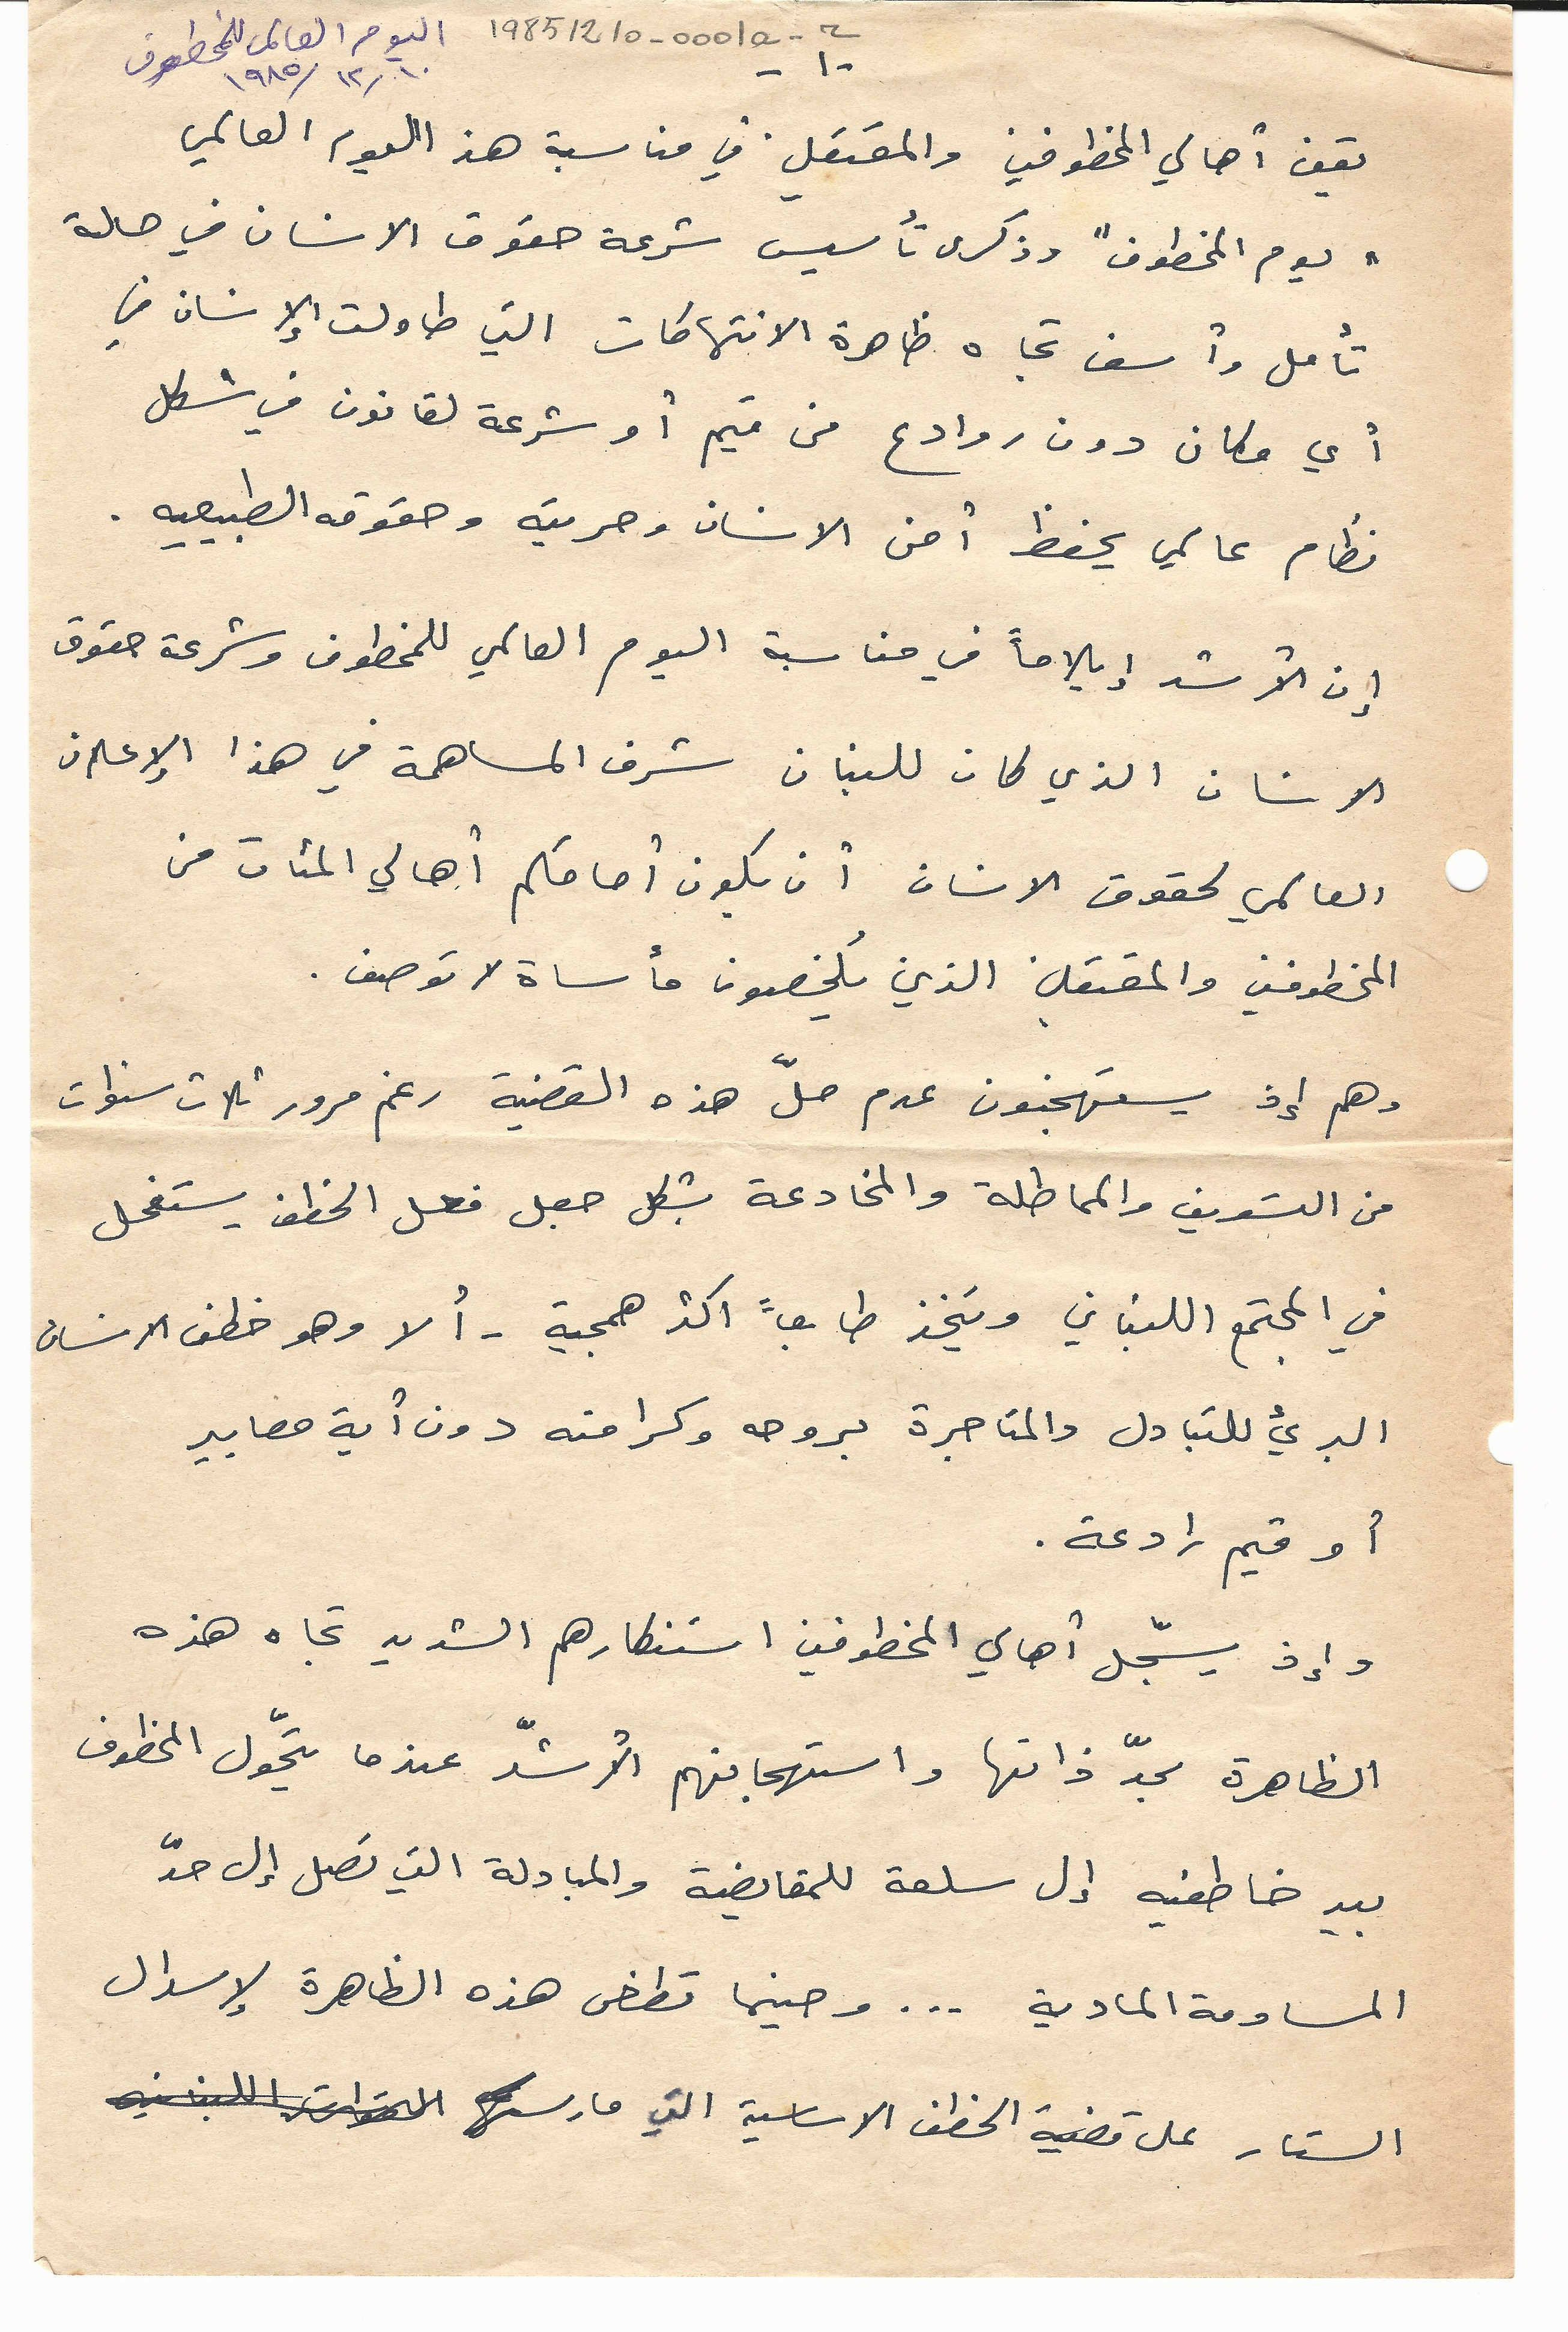 19851210-0001a-
اليوم العالمي للمخطوف
١٩٨٥/١٢/١٠
-١-
يقف أهالي المخطوفين والمعتقلين في مناسبة هذا اليوم العالمي
"يوم المخطوف" وذكرى تأسيس شرعة حقوق الانسان في حالة
تأمل وأسف تجاه ظاهرة الانتهاكات التي طاولت الإنسان في
أي مكان دون روادع من قيم أو شرعة لقانون في شكل
نظام عالمي يحفظ أمن الانسان وحريته وحقوقه الطبيعيه .
إن الأشد إيلاماً في مناسبة اليوم العالمي للمخطوف وشرعة حقوق
الانسان الذي كان للبنان شرف المساهمة في هذا الإعلان
العالمي لحقوق الانسان أن يكون أمامكم أهالي المئات من
المخطوفين والمعتقلين الذين يلخصون مأساة لا توصف .
وهم إذ يستهجنون عدم حلّ هذه القضية رغم مرور ثلاث سنوات
من التسويف والمماطلة والمخادعة بشكل جعل فعل الخطف يستفحل
في المجتمع اللبناني ويتخذ طابعاً اكثر همجية - ألا وهو خطف الانسان
البريء للتبادل والمتاجرة بروحه وكرامته دون أية معايير
أو قيم رادعة .
وإذ يسجّل أهالي المخطوفين استنكارهم الشديد تجاه هذه
الظاهرة بحدّ ذاتها واستهجانهم الأشدّ عندما يتحّول المخطوف
بيد خاطفيه إلى سلعة للمقايضة والمبادلة التي تصل إلى حدّ
المساومة المادية ... وحينما تطغى هذه الظاهرة لإسدال
الستار على قضية الخطف الاساسية التي مارستها القوات اللبنانيه